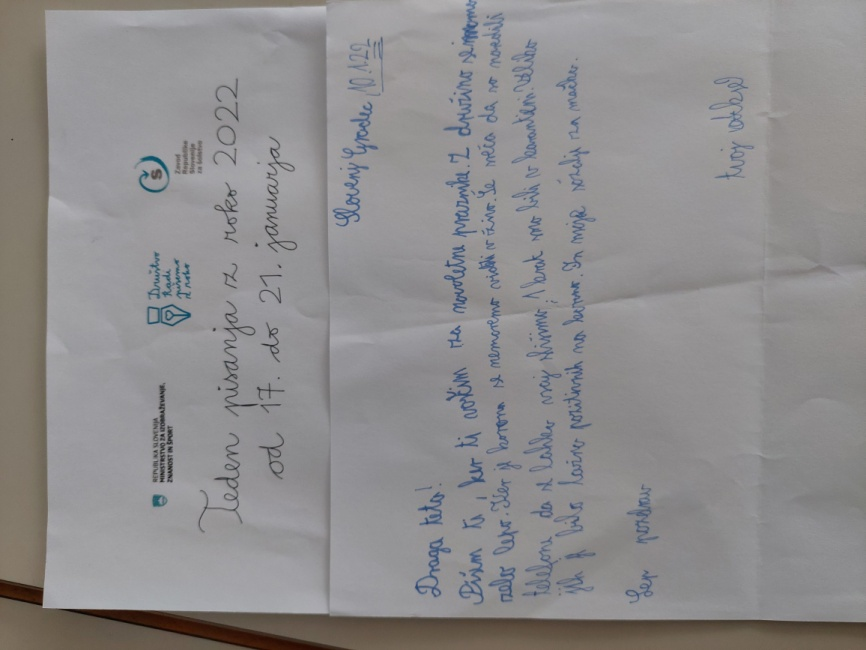 REPUBLIKA SLOVENIJA
MINISTRSTVO ZA IZOBRAŽEVANJE,
ZNANOST IN ŠPORT
Društvo
Radi
pišemo
z roko
Zavod
Republike
Slovenije
za šolstvo
Teden pisanja z roko 2022
od 17. do 21. januarja
Slovenj Gradec 10.1.22
Draga teta!
Pišem ti, ker ti voščim za novoletne praznike z družino se imamo
zelo lepo. Ker je korona se nemoremo videti v živo. Še sreča da so naredili
telefone da se lahko vsaj slišimo, 1 krat smo bili v karanteni. Veliko
jih je bilo lažno pozitivnih na korono. In moja
Lep pozdrav
tvoj